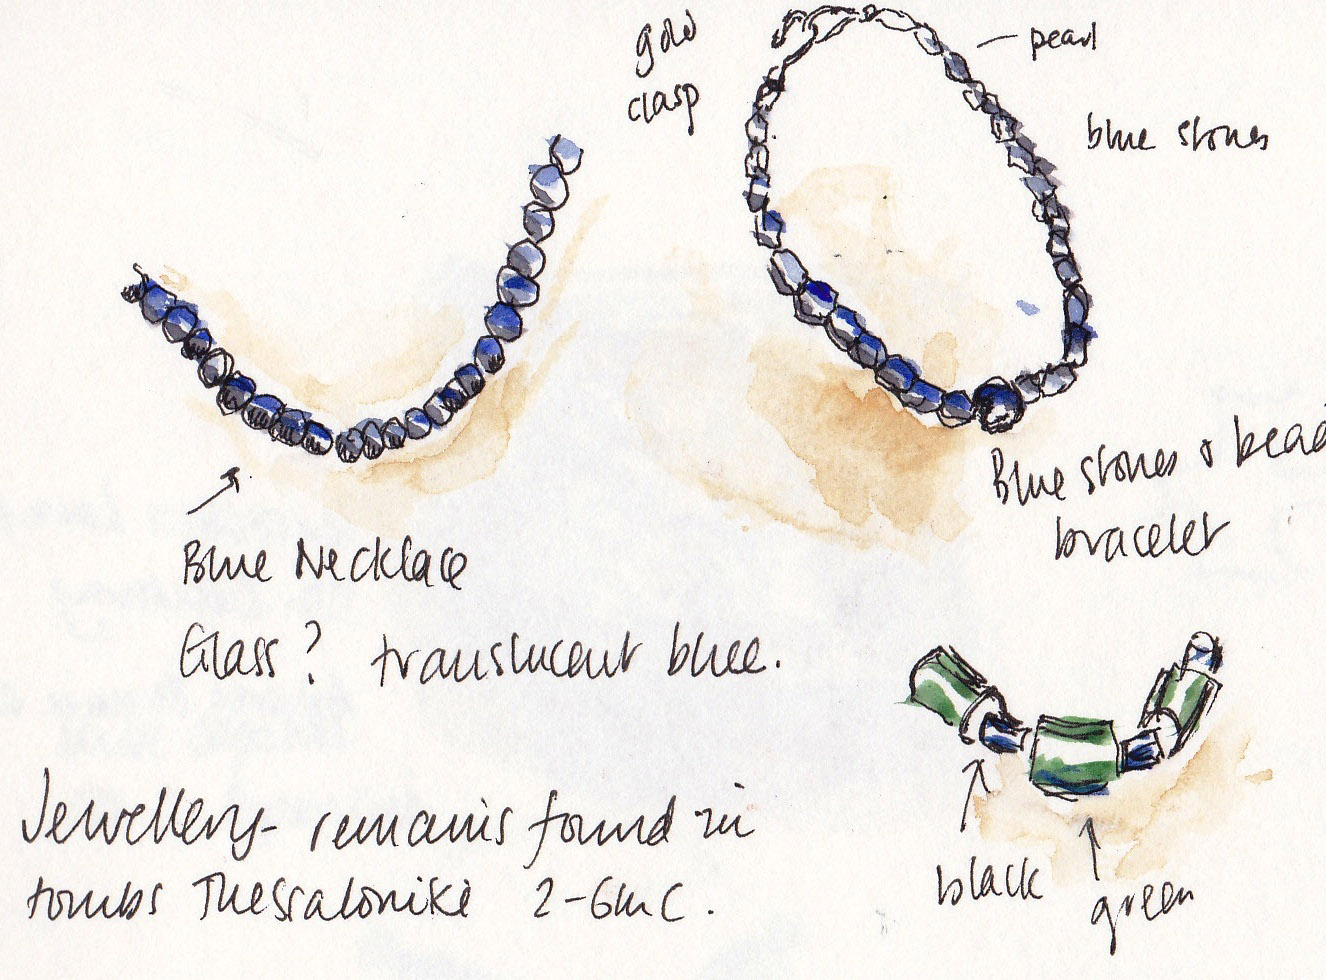 gold
clasp
pearl
blue stones
Blue stones & bead
bracelet
Blue Necklace
Glass? translucent blue.
black
green
Jewellery - remains found in
tombs Thessalonike 2-6th C.